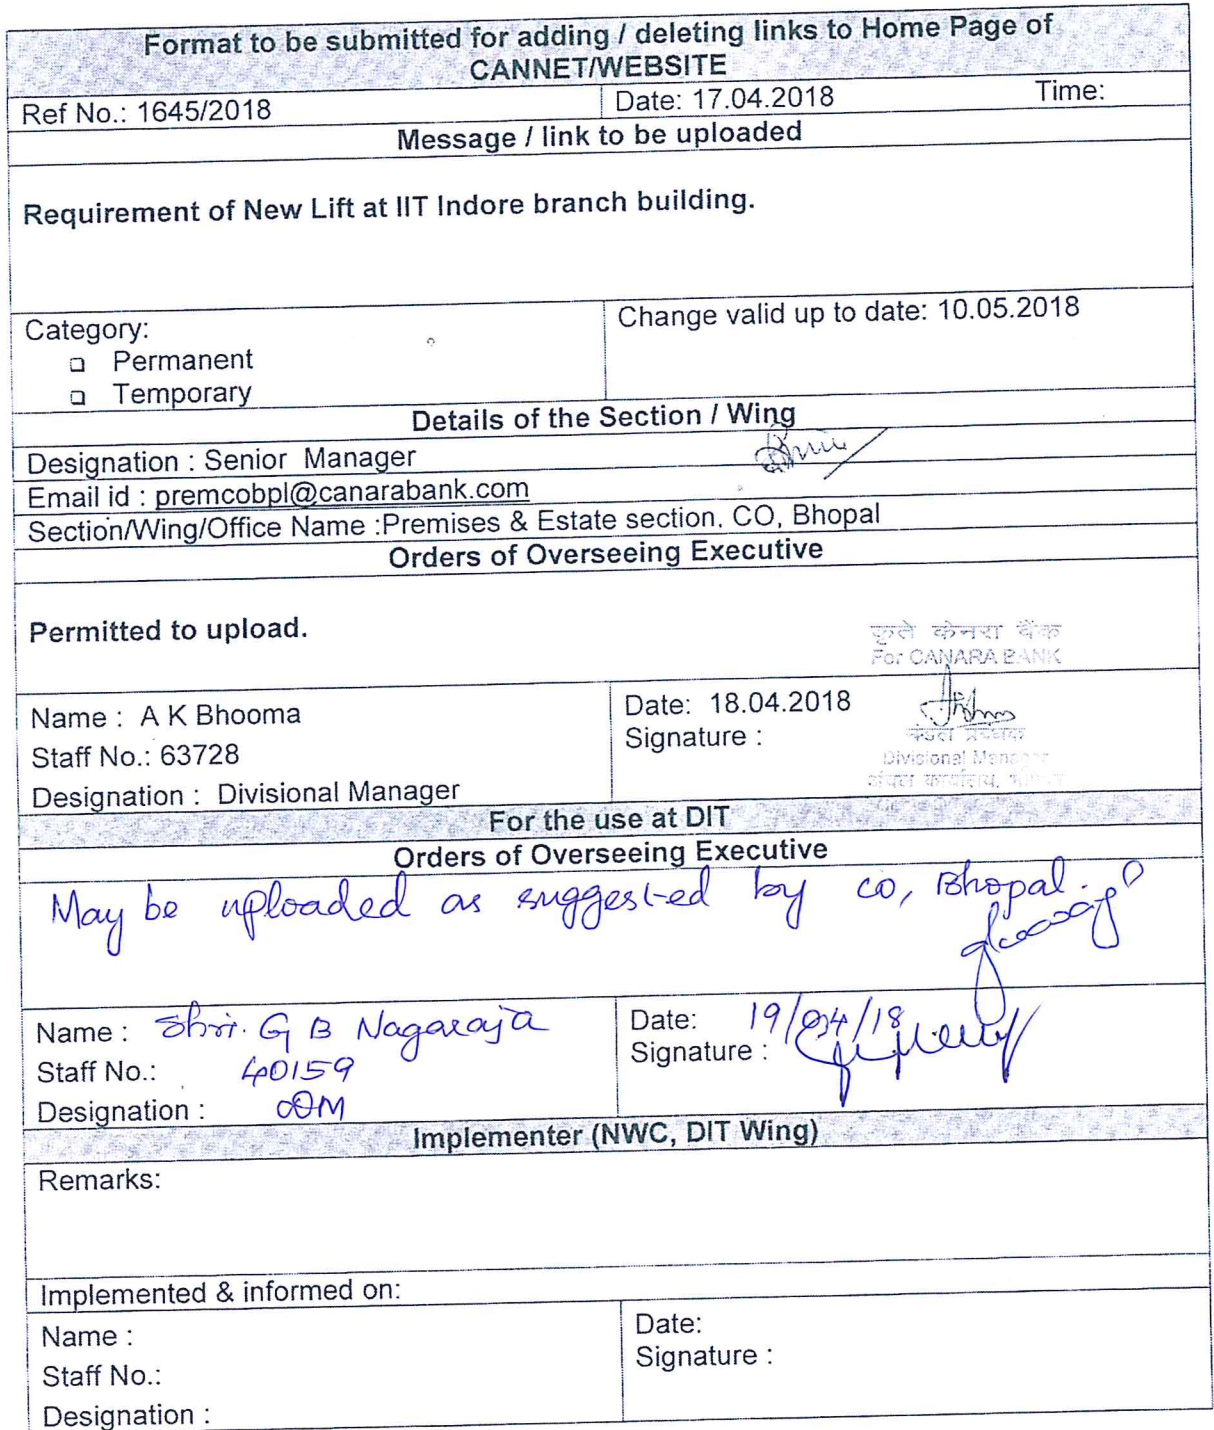 Format to be submitted for adding / deleting links to Home Page of
CANNET/WEBSITE
Ref No.: 1645/2018 Date: 17.04.2018 Time:
Message / link to be uploaded
Requirement of New Lift at IIT Indore branch building.
Category: Change valid up to date: 10.05.2018
Permanent
Temporary
Details of the Section / Wing
Designation : Senior Manager
Email id : premcobpl@canarabank.com
Section/Wing/Office Name :Premises & Estate section. CO, Bhopal
Orders of Overseeing Executive
Permitted to upload.
कृते केनरा बैंक
For CANARA BANK
Name : A K Bhooma Date: 18.04.2018
Staff No.: 63728 Signature :
Divisional Manager
Designation : Divisional Manager
For the use at DIT
Orders of Overseeing Executive
May be uploaded as suggested by CO, Bhopal.
Name : Shri. G B Nagaraja Date: 19/04/18
Staff No.: 40159 Signature :
Designation : DM
Implementer (NWC, DIT Wing)
Remarks:
Implemented & informed on:
Name : Date:
Staff No.: Signature :
Designation :